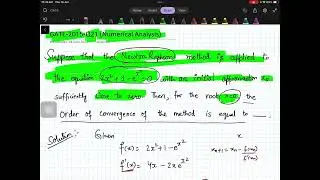 GATE-2016-(12) (Numerical Analysis)
Suppose that the Newton-Raphson method is applied
to the equation 2x²+1-e^{x²}=0 with an initial approximation x₀
sufficiently close to zero. Then, for the root x=0, the
Order of convergence of the method is equal to ___.
Solution:- Given
f(x) = 2x²+1-e^{x²}
f'(x) = 4x - 2xe^{x²}
x
x_{n+1} = x_n - f(x_n)/f'(x_n)